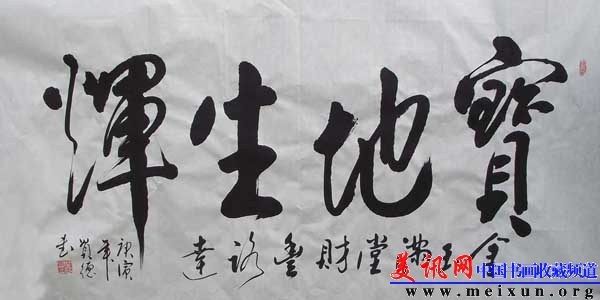 寶地生煇
金玉滿堂財豐路達
庚寅
年
德
書
美讯网 中国书画收藏频道
www.meixun.org